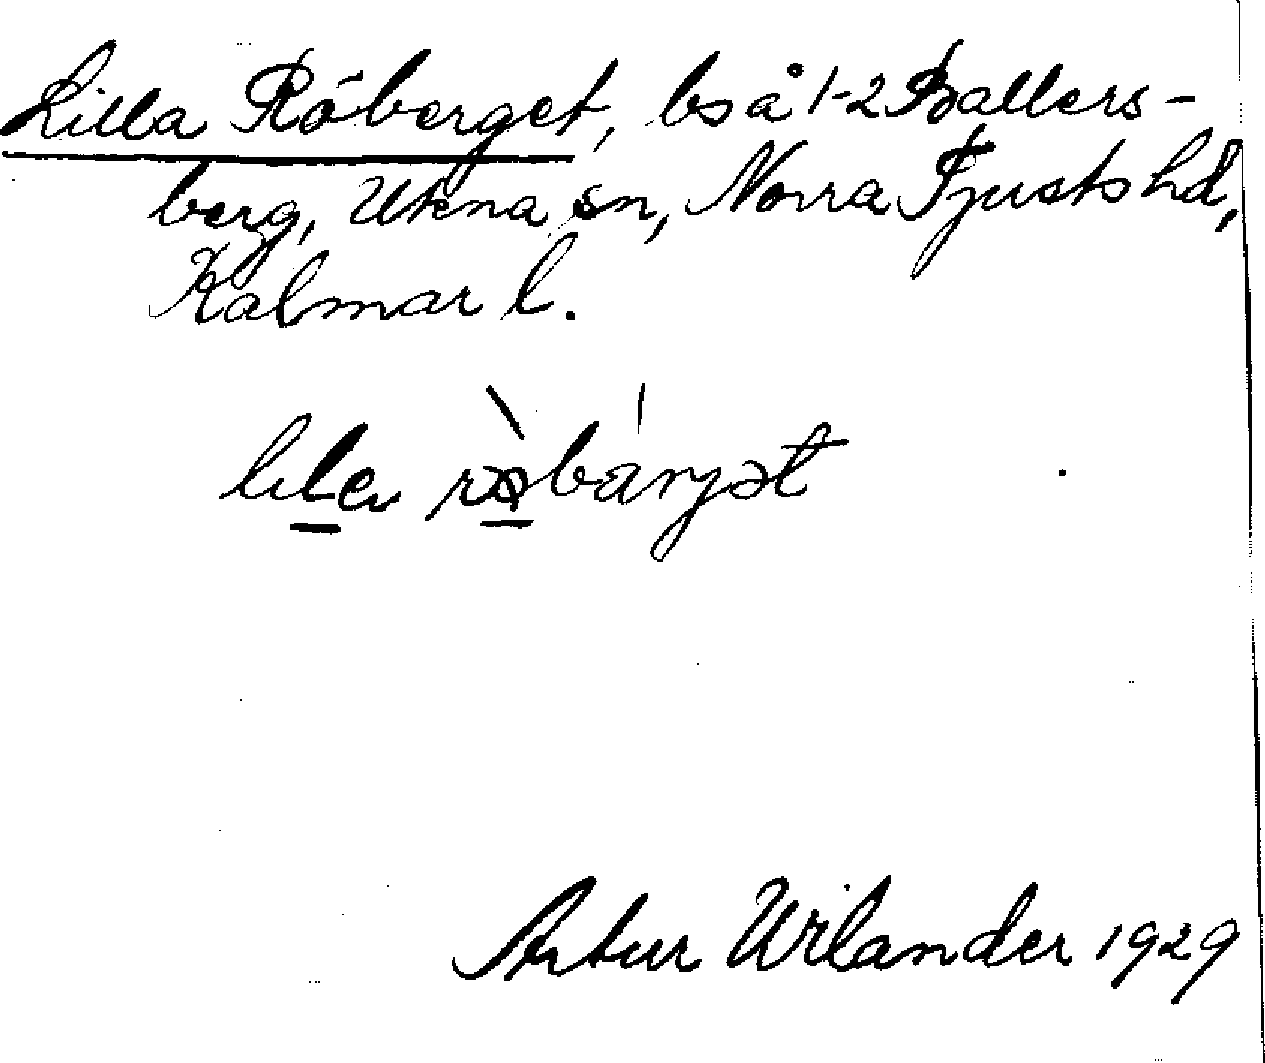 Lilla Röberget, bs å 1-2 Ballers-
berg, Ukna sn, Norra Tjusts hd,
Kalmar l.
Artur Wilander 1929